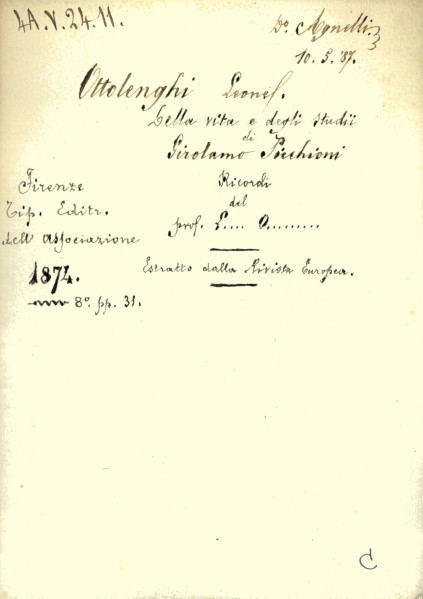 4A.V.24.11.
Dr. Agnelli.
10.5.'37.
Ottolenghi Leonel.
Della vita e degli studii
di
Girolamo Picchioni
Ricordi
del
prof. L.... O.........
Firenze
Tip. Editr.
dell' associazione
1874.
8º. pp. 31.
Estratto dalla Rivista Europea.
C